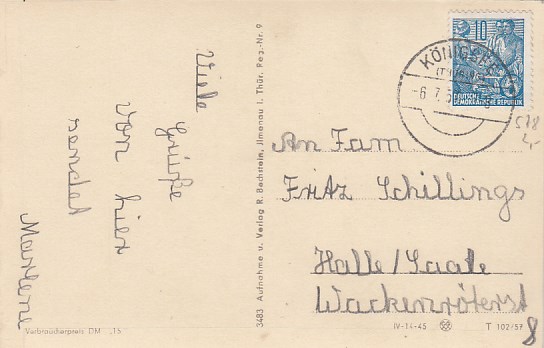 Viele
Grüße
von hier
sendet
Marlene
3483 Aufnahme u. Verlag R. Bechstein, Ilmenau i. Thür. Reg.-Nr. 9
10
DEUTSCHE
DEMOKRATISCHE REPUBLIK
KÖNIGSEE
(THÜR)
-6. 7. 5
578
2,-
An Fam
Fritz Schillings
Halle/Saale
Wackenröterst
8
Verbraucherpreis DM -,15
IV-14-45
T 102/57